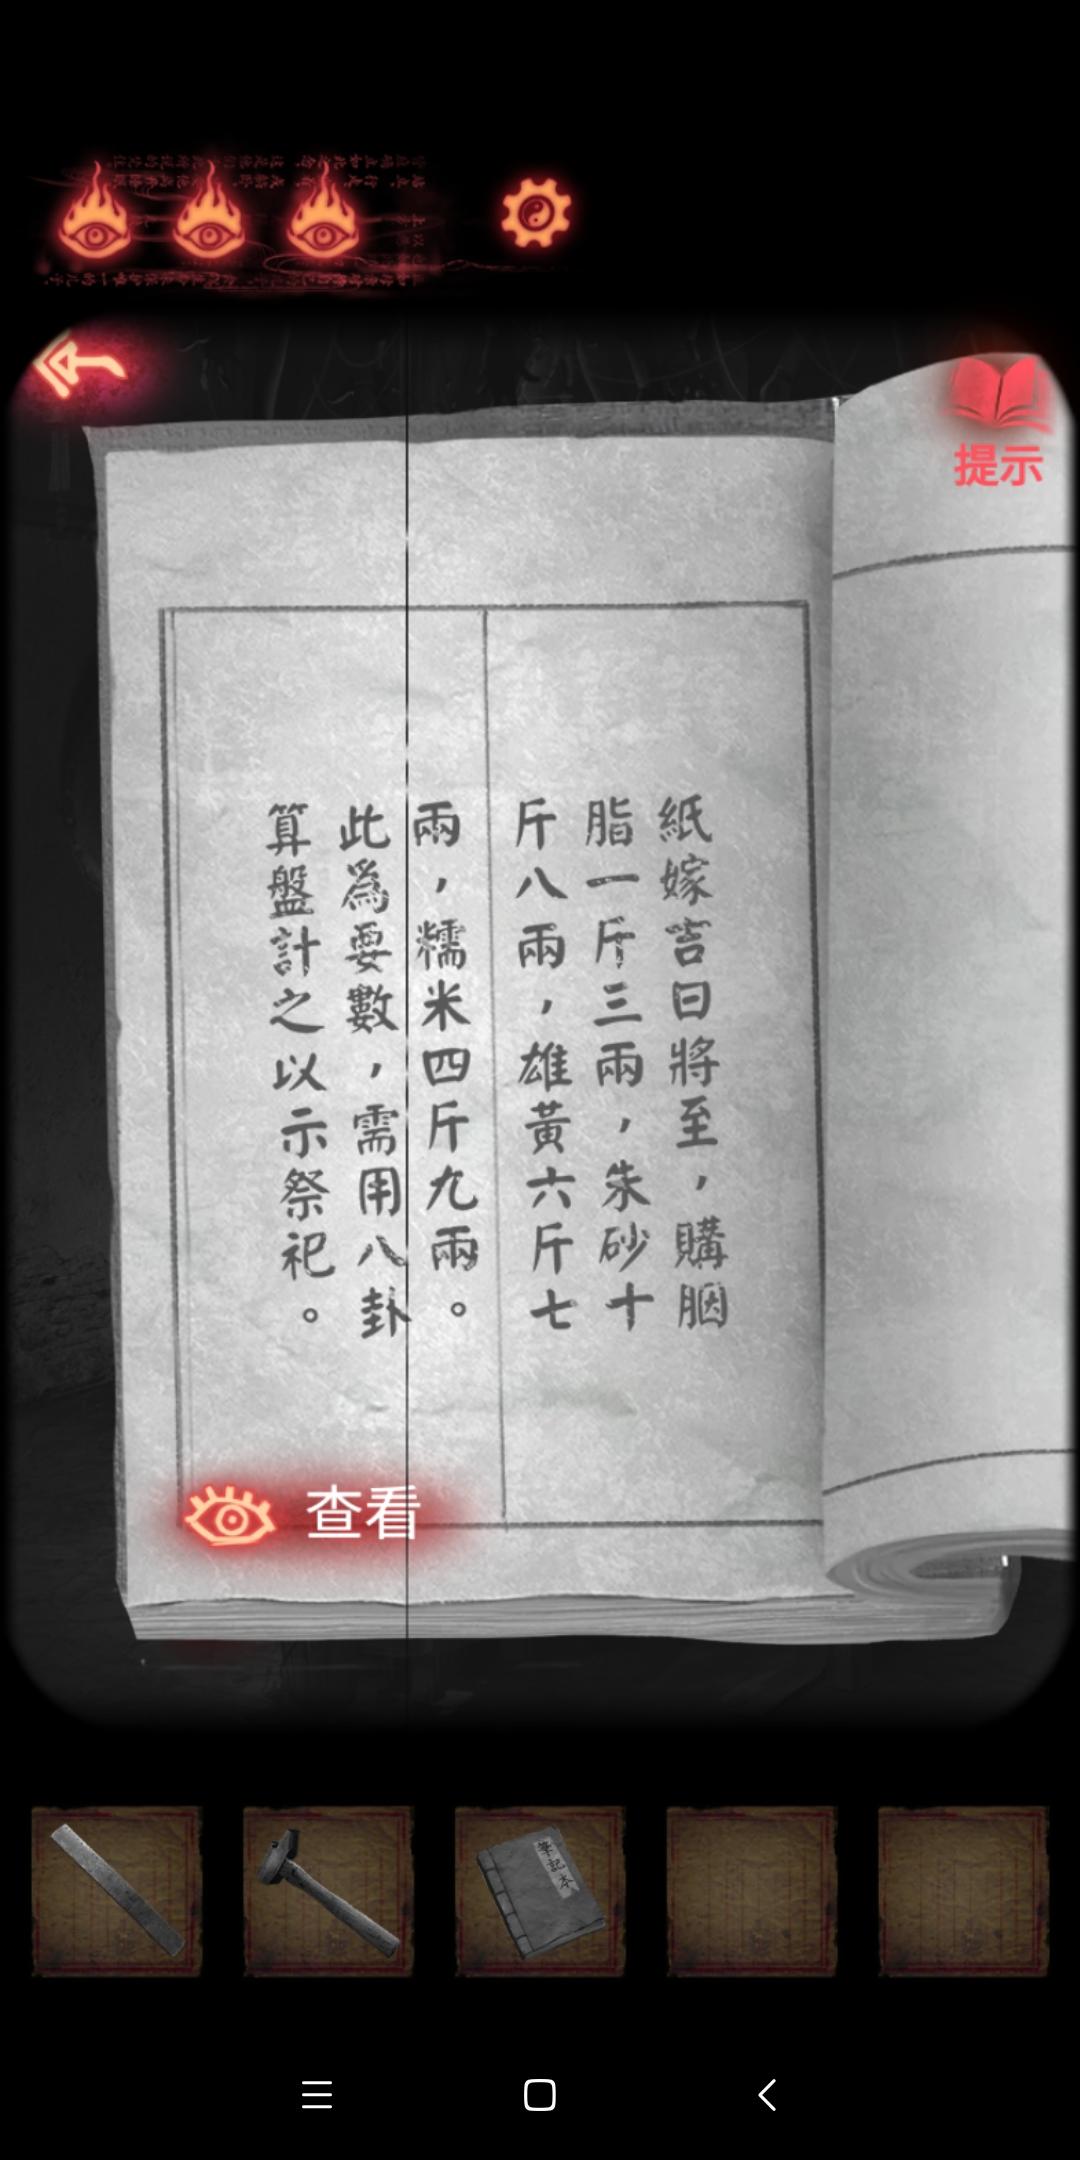 提示
紙嫁吉日將至，購胭
脂一斤三兩，朱砂十
斤八兩，雄黃六斤七
兩，糯米四斤九兩。
此為要數，需用八卦
算盤計之以示祭祀。
查看
筆記本